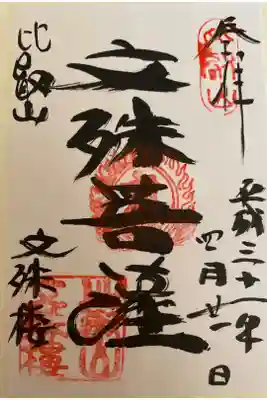 奉拝
平成三十一年
四月廿一日
文殊菩薩
比叡山
文殊楼